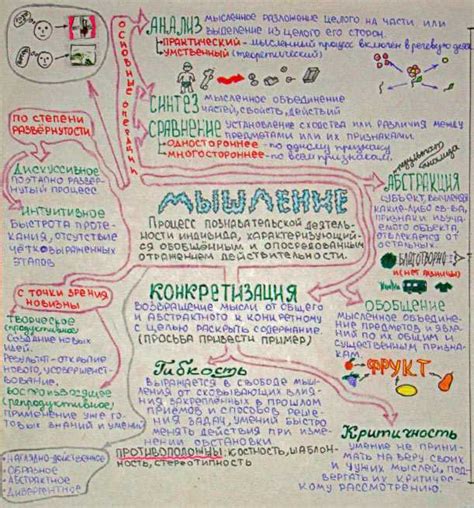 АНАЛИЗ
мысленное разложение целого на части или
выделение из целого его сторон.
ПРАКТИЧЕСКИЙ - мысленный процес включен в речевую деят
УМСТВЕННЫЙ (теоретический)
ОСНОВНЫЕ ОПЕРАЦИИ
СИНТЕЗ
мысленное объединение
частей, свойств, действий
СРАВНЕНИЕ
установление сходства или различия между
предметами или их признаками.
ОДНОСТОРОННЕЕ - по одному признаку
МНОГОСТОРОННЕЕ - по всем признакам.
ПО СТЕПЕНИ
РАЗВЕРНУТОСТИ
ДИСКУССИВНОЕ
поэтапно развер-
нутый процесс
ИНТУИТИВНОЕ
быстрота проте-
кания, отсутствие
чётко выраженных
этапов
МЫШЛЕНИЕ
Процесс познавательской деятель-
ности индивида, характеризующий-
ся обобщённым и опосредованным
отражением действительности.
АБСТРАКЦИЯ
субъект, вычленяя
какие-либо св-ва,
признаки изучае-
мого объекта,
отвлекается от
остальных.
БЛАГОТВОРНО
и нет различию
С ТОЧКИ ЗРЕНИЯ
НОВИЗНЫ
ТВОРЧЕСКОЕ
(продуктивное)
создание новых
идей.
Результат - открытие
нового, усовершенст-
вование.
ВОСПРОИЗВОДЯЩЕЕ
(репродуктивное)
применение уже го-
товых знаний и умений
КОНКРЕТИЗАЦИЯ
возвращение мысли от общего
и абстрактного к конкретному
с целью раскрыть содержание.
(просьба привести пример)
ОБОБЩЕНИЕ
мысленное объедине-
ние предметов и явле-
ний по их общим и
существенным призна-
кам.
ФРУКТ
Гибкость
выражается в свободе мышле-
ния от сковывающих влия-
ния закрепленных в прошлом
приёмов и способов реше-
ния задач, умений быстро
менять действия при изме-
нении обстановки
ПРОТИВОПОЛОЖНЫ: косность, шаблон-
ность, стереотипность
Критичность
умение не прини-
мать на веру своих
и чужих мыслей, под-
вергать их критичес-
кому рассмотрению.
НАГЛЯДНО-ДЕЙСТВЕННОЕ
ОБРАЗНОЕ
АБСТРАКТНОЕ
ДИВЕРГЕНТНОЕ